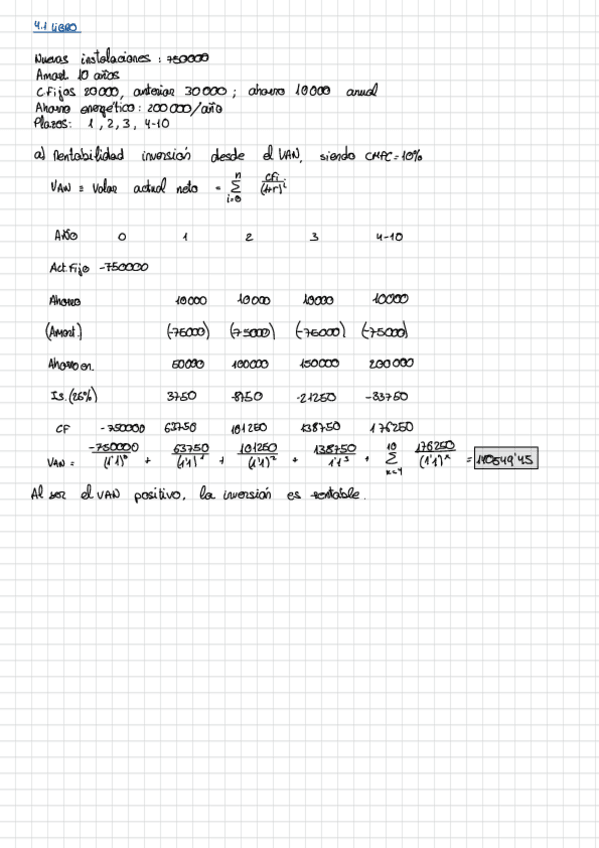 4.1 LIBRO
Nuevas instalaciones : 750000
Amort. 10 años
C Fijos 20000, anterior 30000 ; ahorro 10000 anual
Ahorro energético : 200000/año
Plazos: 1, 2, 3, 4-10
a) Rentabilidad inversión desde el VAN, siendo CMPC=10%
VAN = Valor actual neto = n Σ i=0 CFi/(1+r)^i
AÑO 0 1 2 3 4-10
Act. Fijo -750000
Ahorro 10000 10000 10000 10000
(Amort.) (-75000) (-75000) (-75000) (-75000)
Ahorro en. 50000 100000 150000 200000
Is. (25%) 3750 -8750 -21250 -33750
CF -750000 63750 101250 138750 176250
VAN = -750000/(1'1)^0 + 63750/(1'1)^1 + 101250/(1'1)^2 + 138750/1'1^3 + 10 Σ x=4 176250/(1'1)^x = 140549'45
Al ser el VAN positivo, la inversión es rentable.